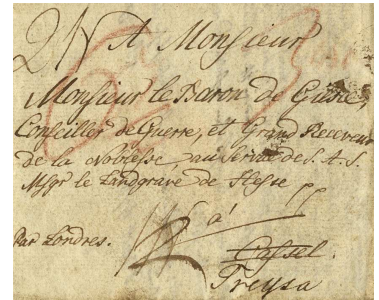 A Monsieur
Monsieur le Baron de
Conseiller de Guerre, et Grand Receveur
de la Noblesse au Service de S. A. S.
Msgr le Landgrave de Hesse
à
Par Londres. Cassel
Treysa